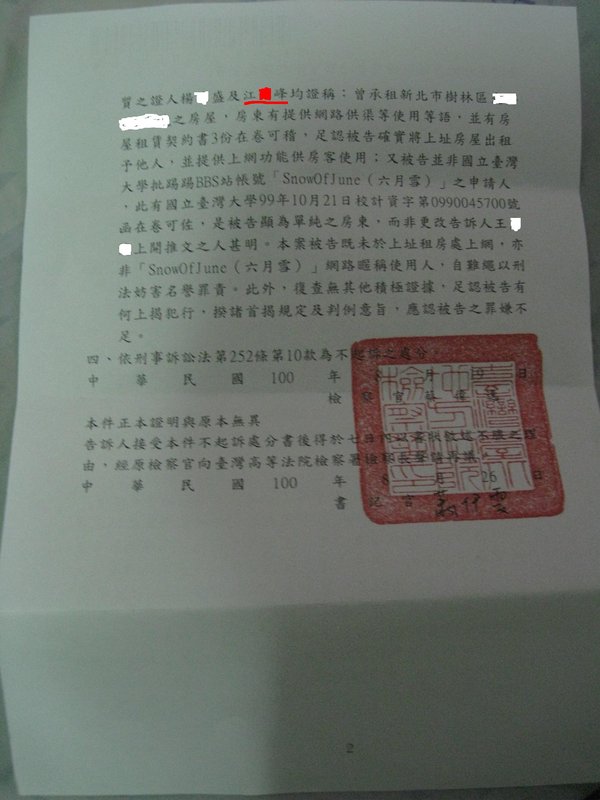 質之證人楊 盛及江 峰均證稱：曾承租新北市樹林區
之房屋，房東有提供網路供渠等使用等語，並有房
屋租賃契約書3份在卷可稽，足認被告確實將上址房屋出租
予他人，並提供上網功能供房客使用；又被告並非國立臺灣
大學批踢踢BBS站帳號「SnowOfJune（六月雪）」之申請人
，此有國立臺灣大學99年10月21日校計資字第0990045700號
函在卷可佐，是被告顯為單純之房東，而非更改告訴人王
上開推文之人甚明。本案被告既未於上址租房處上網，亦
非「SnowOfJune（六月雪）」網路暱稱使用人，自難繩以刑
法妨害名譽罪責。此外，復查無其他積極證據，足認被告有
何上揭犯行，揆諸首揭規定及判例意旨，應認被告之罪嫌不
足。
四、依刑事訴訟法第252條第10款為不起訴之處分。
中 華 民 國 100 年 8 月 19 日
檢 察 官
本件正本證明與原本無異
告訴人接受本件不起訴處分書後得於七日內以書狀敘述不服之理
由，經原檢察官向臺灣高等法院檢察署檢察長聲請再議。
中 華 民 國 100 年 8 月 26 日
書 記 官
2